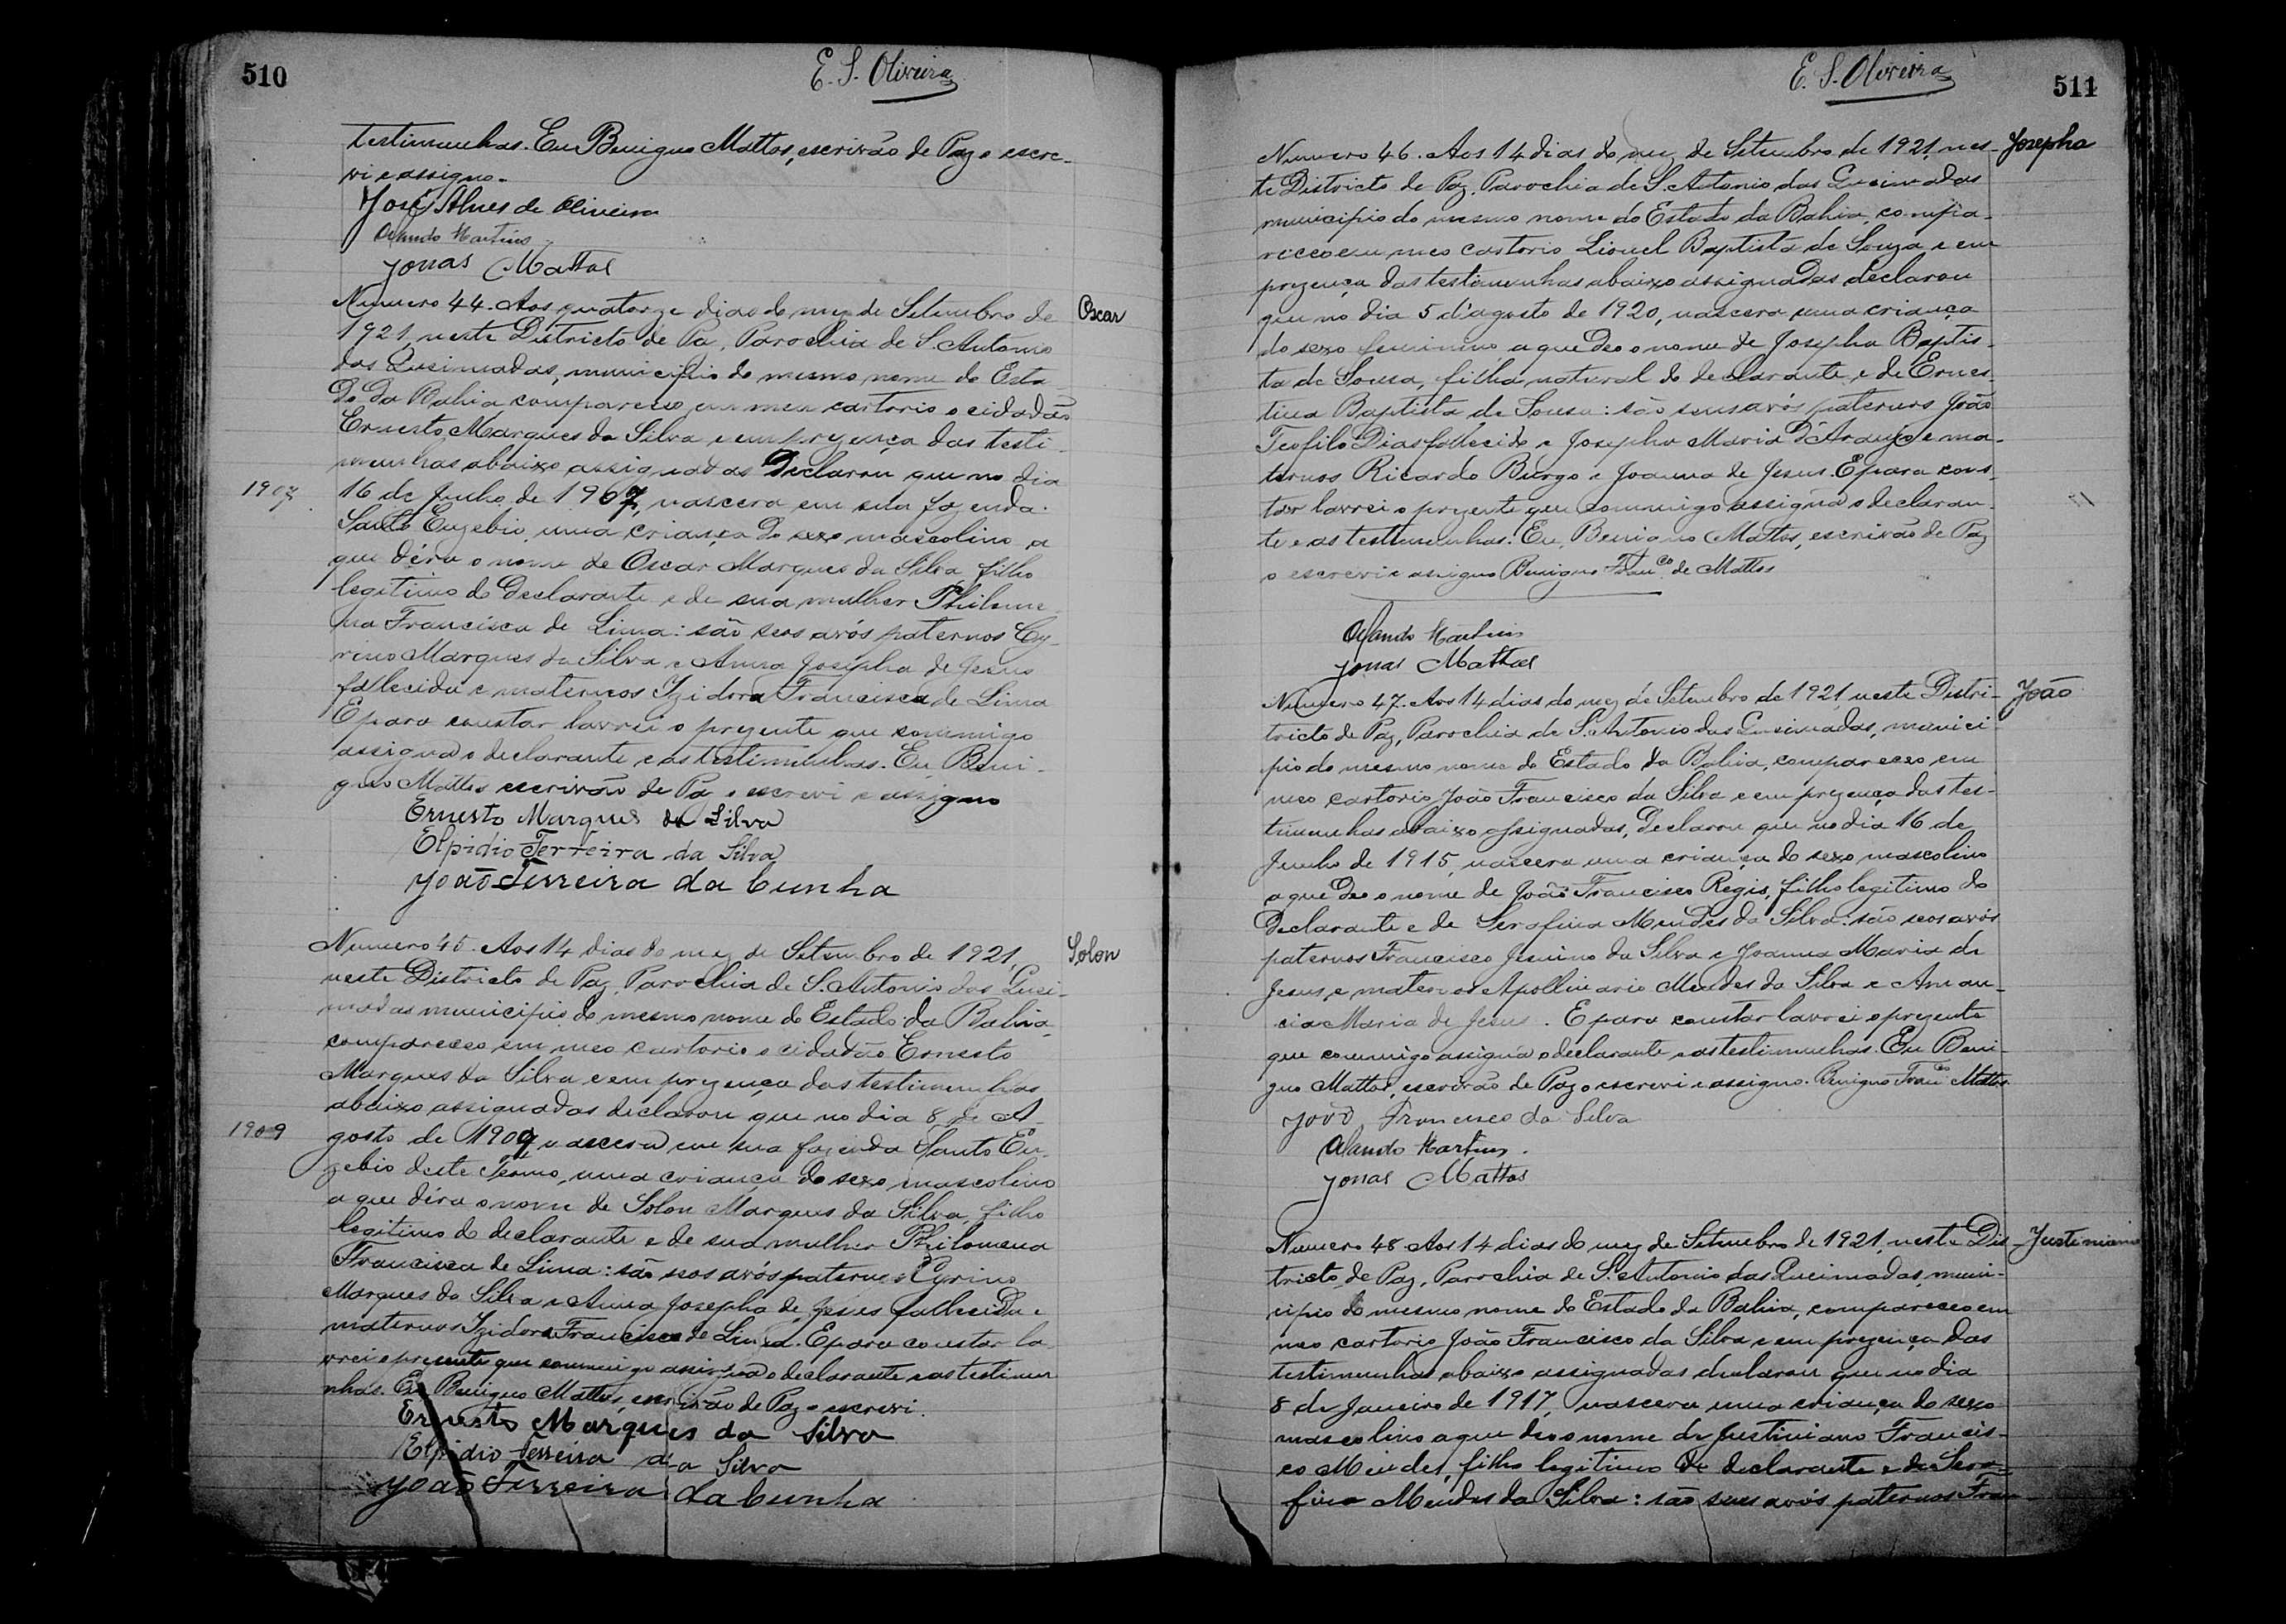 510
E. S. Oliveira
testimunhas. Eu Benigno Mattos, escrivão de Paz o escre-
vi e assigno.
José Alves de Oliveira
Orlando Martins
Jonas Mattos
Numero 44. Aos quatorze dias do mez de Setembro de
Oscar
1921, neste Districto de Pa, Parochia de S. Antonio
das Queimadas, municipio do mesmo nome do Esta
do da Bahia compareceo em meu cartorio o cidadão
Ernesto Marques da Silva e em prezença das testi
munhas abaixo assignadas Declarou que no dia
1907
16 de Junho de 1907, nascera em sua fazenda
Santo Euzebio, uma criança do sexo mascolino a
que déra o nome de Oscar Marques da Silva, filho
legitimo do Declarante e de sua mulher Philome
na Francisca de Lima: são seos avós paternos Cy-
rino Marques da Silva e Anna Josepha de Jesus
fallecida e maternos Izidora Francisca de Lima
E para constar lavrei o prezente que commigo
assigna o declarante e as testimunhas. Eu, Beni-
gno Mattos escrivão de Paz o escrevi e assigno
Ernesto Marques da Silva
Elpidio Ferreira da Silva
João Ferreira da Cunha
Numero 45. Aos 14 dias do mez de Setembro de 1921,
Solon
neste Districto de Paz, Parochia de S. Antonio das Quei-
madas municipio do mesmo nome do Estado da Bahia
compareceo em meo cartorio o cidadão Ernesto
Marques da Silva e em prezença das testimunhas
abaixo assignadas declarou que no dia 8 de A-
1909
gosto de 1909 nascera em sua fazenda Santo Eu-
zebio deste Termo, uma criança do sexo mascolino
a que déra o nome de Solon Marques da Silva, filho
legitimo do declarante e de sua mulher Philomena
Francisca de Lima: são seos avós paternos Cyrino
Marques da Silva e Anna Josepha de Jesus fallecida e
maternos Izidora Francisca de Lima. E para constar la
vrei o prezente que commigo assigna o declarante e as testimu
nhas. Eu Benigno Mattos, escrivão de Paz o escrevi.
Ernesto Marques da Silva
Elpidio Ferreira da Silva
João Ferreira da Cunha
E. S. Oliveira
511
Numero 46. Aos 14 dias do mez de Setembro de 1921, nes-
Josepha
te Districto de Paz, Parochia de S. Antonio das Queimadas
municipio do mesmo nome do Estado da Bahia, compa-
receo em meo cartorio Lionel Baptista de Souza e em
prezença das testimunhas abaixo assignadas declarou
que no dia 5 d'agosto de 1920, nascera uma criança
do sexo feminino, a que deo o nome de Josepha Baptis-
ta de Sousa, filha natural do declarante e de Ernes-
tina Baptista de Sousa: são seus avós paternos João
Teofilo Dias fallecido e Josepha Maria d'Araujo e ma-
ternos Ricardo Burgo e Joanna de Jesus. E para cons-
tar lavrei o prezente que commigo assigna o declaran-
te e as testimunhas. Eu, Benigno Mattos, escrivão de Paz
o escrevi e assigno Benigno Franco de Mattos
Orlando Martins
Jonas Mattos
Numero 47. Aos 14 dias do mez de Setembro de 1921, neste Distri-
João
tricto de Paz, Parochia de S. Antonio das Queimadas, munici-
pio do mesmo nome do Estado da Bahia, compareceo em
meo cartorio João Francisco da Silva e em prezença das tes-
timunhas abaixo assignadas, Declarou que no dia 16 de
Junho de 1915, nascera uma criança do sexo mascolino
a que deo o nome de João Francisco Regis, filho legitimo do
Declarante e de Serafina Mendes da Silva: são seos avós
paternos Francisco Jesuino da Silva e Joanna Maria de
Jesus e maternos Apollinario Mendes da Silva e Aman-
cia Maria de Jesus. E para constar lavrei o prezente
que commigo assigna o declarante e as testimunhas. Eu Beni-
gno Mattos, escrivão de Paz o escrevi e assigno. Benigno Franco Mattos
João Francisco da Silva
Orlando Martins.
Jonas Mattos
Numero 48. Aos 14 dias do mez de Setembro de 1921, neste Dis-
Justiniano
tricto de Paz, Parochia de S. Antonio das Queimadas, muni-
cipio do mesmo nome do Estado da Bahia, compareceo em
meo cartorio João Francisco da Silva e em prezença das
testimunhas abaixo assignadas declarou que no dia
8 de Janeiro de 1917, nascera uma criança do sexo
mascolino a que deo o nome de Justiniano Francis-
co Mendes, filho legitimo do declarante e de Sera-
fina Mendes da Silva: são seus avós paternos Fran-